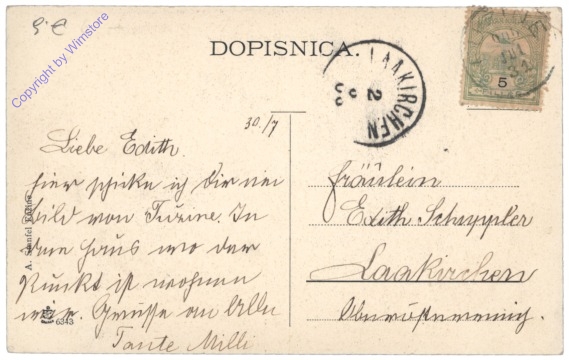 5 €
Copyright by Wimstore
DOPISNICA.
LAAKIRCHEN
2
5
30./7
Liebe Edith.
hier schicke ich Dir ein
bild von In
dem Haus wo der
Punkt ist wohnen
wir. Grüsse an Alle
Tante Milli
Fräulein
Edith Schuppler
Laakirchen
Oberösterreich.
A. Editor
6343